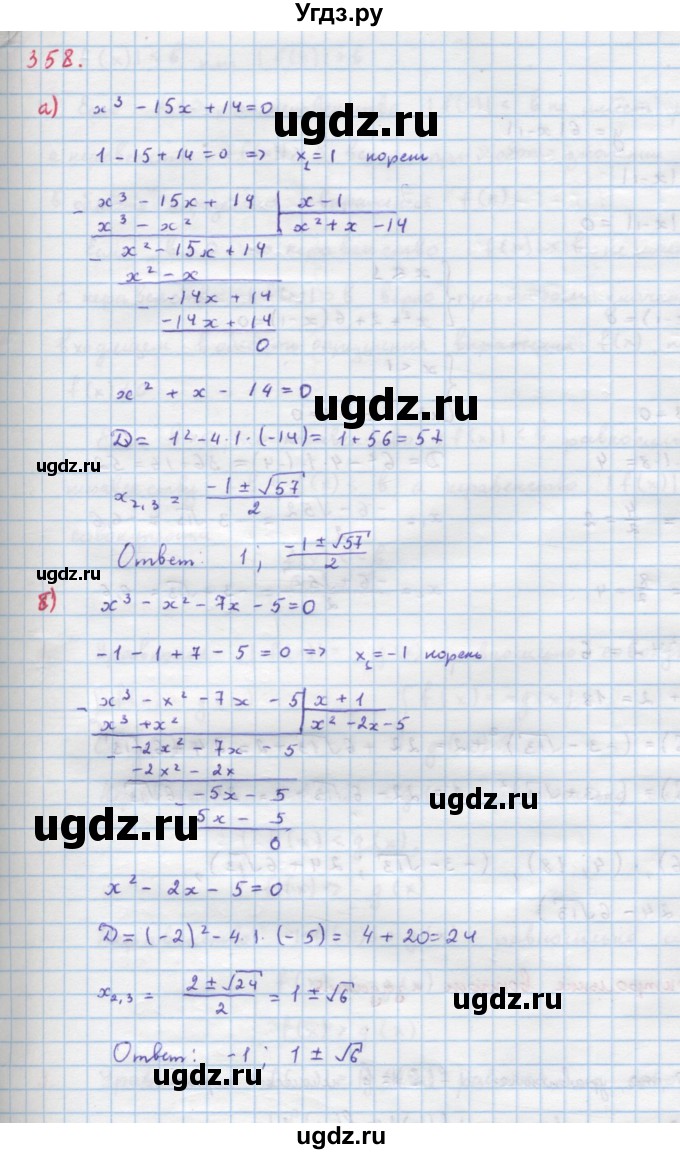 Угдз.ру
358.
а) x³ - 15x + 14 = 0
ugdz.ru
1 - 15 + 14 = 0 => x₁ = 1 корень
x³ - 15x + 14 | x - 1
x³ - x² | x² + x - 14
- x² - 15x + 14
x² - x
- -14x + 14
-14x + 14
0
x² + x - 14 = 0
ugdz.ru
D = 1² - 4·1·(-14) = 1 + 56 = 57
ugdz.ru
x₂,₃ = (-1 ± √57)/2
Ответ: 1; (-1 ± √57)/2
ugdz.ru
б) x³ - x² - 7x - 5 = 0
-1 - 1 + 7 - 5 = 0 => x₁ = -1 корень
- x³ - x² - 7x - 5 | x + 1
x³ + x² | x² - 2x - 5
- -2x² - 7x - 5
-2x² - 2x
- -5x - 5
ugdz.ru
5x - 5
ugdz.ru
0
x² - 2x - 5 = 0
D = (-2)² - 4·1·(-5) = 4 + 20 = 24
x₂,₃ = (2 ± √24)/2 = 1 ± √6
ugdz.ru
Ответ: -1; 1 ± √6
ugdz.ru
ugdz.ru